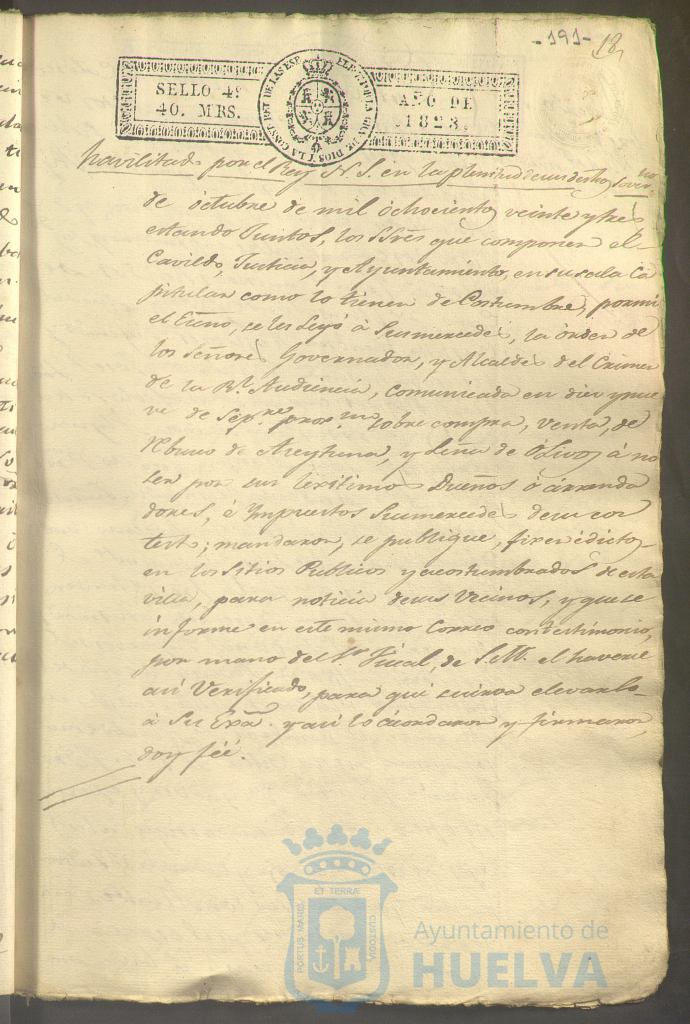 -191- 18,
SELLO 4º
40. MRS.
AÑO DE
1823.
havilitado por el Rey N. S. en la plenitud de sus dros, Sover.nos
de octubre de mil ochociento, veinte y tres
estando Juntos, los SSres que componen el
Cavildo, Justicia, y Ayuntamiento, en su sala Ca
pitular como lo tienen de Costumbre, por mi
el Esno, se les Leyó á Sus mercedes, la orden de
los Señores Governador, y Alcaldes del Crimen
de la Rl Audiencia, comunicada en diez y nue
ve de Sepre. prox.mo sobre compra, venta, de
rebusco de Aseytuna, y Leña de Olivos á no
ser por sus lexitimos Dueños ó arrenda
dores, é Impuestos Sus mercedes de su con
testo; mandaron, se publique, fixen edictos
en los Sitios Publicos y acostumbrados de esta
villa, para noticia de sus Vecinos, y que se
informe en este mismo Correo con testimonio,
por mano del Sr. Fiscal, de S. M. el haverse
asi Verificado, para que se sirva elevarlo
á Su Exa. y asi lo acordaron y firmaron,
doy feé.
PORTUS MARIS
ET TERRÆ
CUSTODIA
Ayuntamiento de
HUELVA